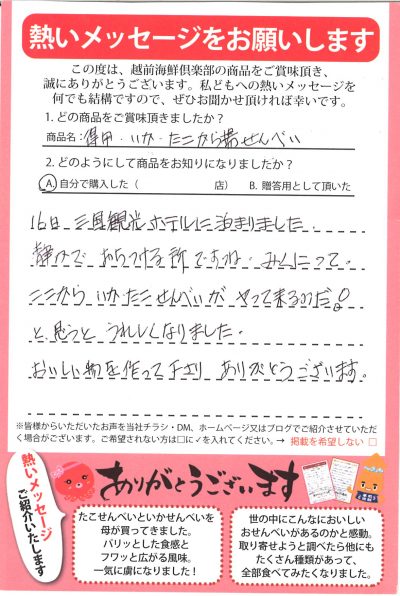 熱いメッセージをお願いします
この度は、越前海鮮倶楽部の商品をご賞味頂き、
誠にありがとうございます。私どもへの熱いメッセージを
何でも結構ですので、ぜひお聞かせ頂ければ幸いです。
1. どの商品をご賞味頂きましたか？
商品名: 得用・いか・たこから揚せんべい
2. どのようにして商品をお知りになりましたか？
A. 自分で購入した（　　　　店） B. 贈答用として頂いた
16日 三国観光ホテルに泊まりました.
静かで おちつける所ですね. みくにって.
ここから いか・たこせんべいが やって来るのだ！
と思うと うれしくなりました.
おいしい物を作って下さり ありがとうございます。
※皆様からいただいたお声を当社チラシ・DM、ホームページ又はブログでご紹介させていただ
く場合がございます。ご希望されない方は□に✓を入れてください。→ 掲載を希望しない □
熱いメッセージ
ご紹介いたします
ありがとうございます
たこせんべいといかせんべいを
母が買ってきました。
パリッとした食感と
フワッと広がる風味。
一気に虜になりました！
世の中にこんなにおいしい
おせんべいがあるのかと感動。
取り寄せようと調べたら他にも
たくさん種類があって、
全部食べてみたくなりました。